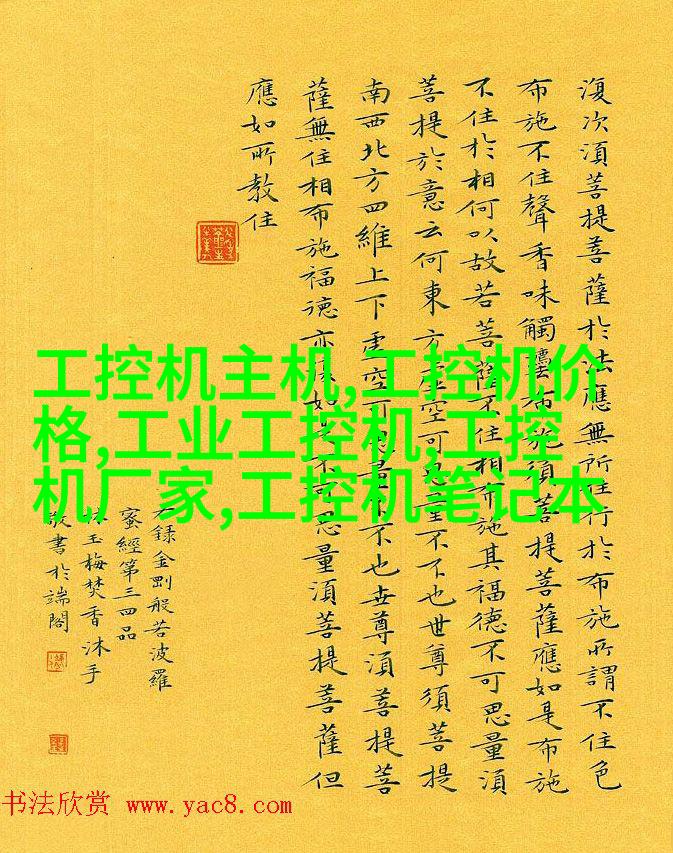 復次湏菩提菩薩於法應無所住行於布施所謂不住色
布施不住聲香味觸灋布施須菩提菩薩應如是布施
不住於相何以故若菩薩不住相布施其福德不可思量湏
菩提於意云何東方虛空可思量不不也世尊須菩提
南西北方四維上下虛空可思量不不也世尊湏菩提菩
薩無住相布施福德亦復如是不可思量湏菩提菩薩但
應如所教住
工控机主机,工控机价
格,工业工控机,工控
机厂家,工控机笔记本
右録金剛般若波羅
蜜經第三四品
玉梅焚香沐手
敬書於端閣
书法欣赏 www.yac8.com